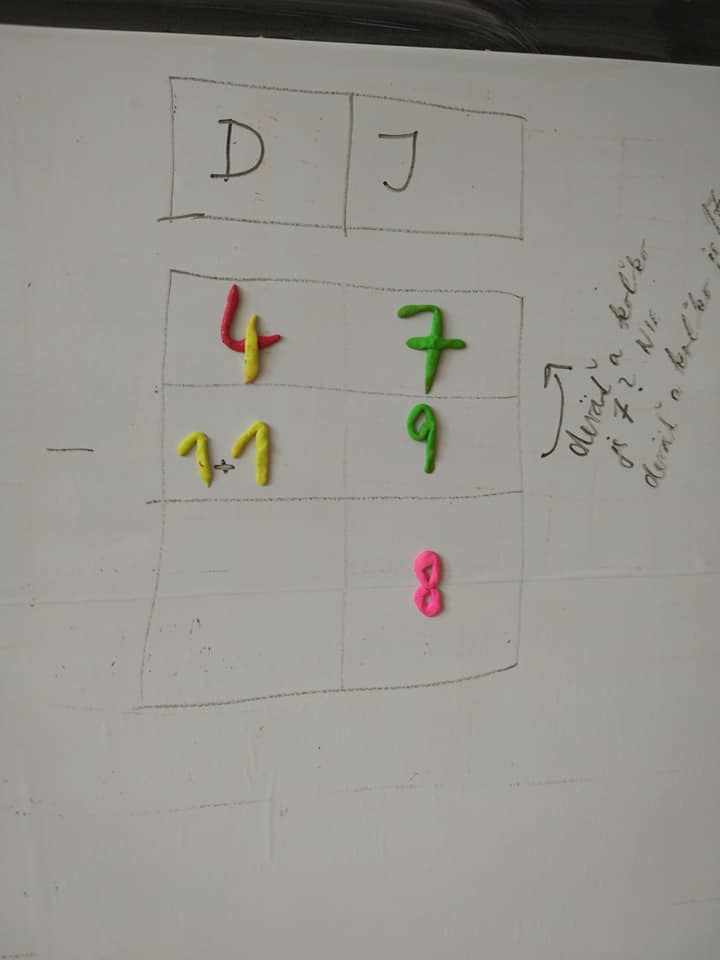 D J
4 7
− 1+1 9
8
deväť a koľko
je 7? Nie
deväť a koľko je 17